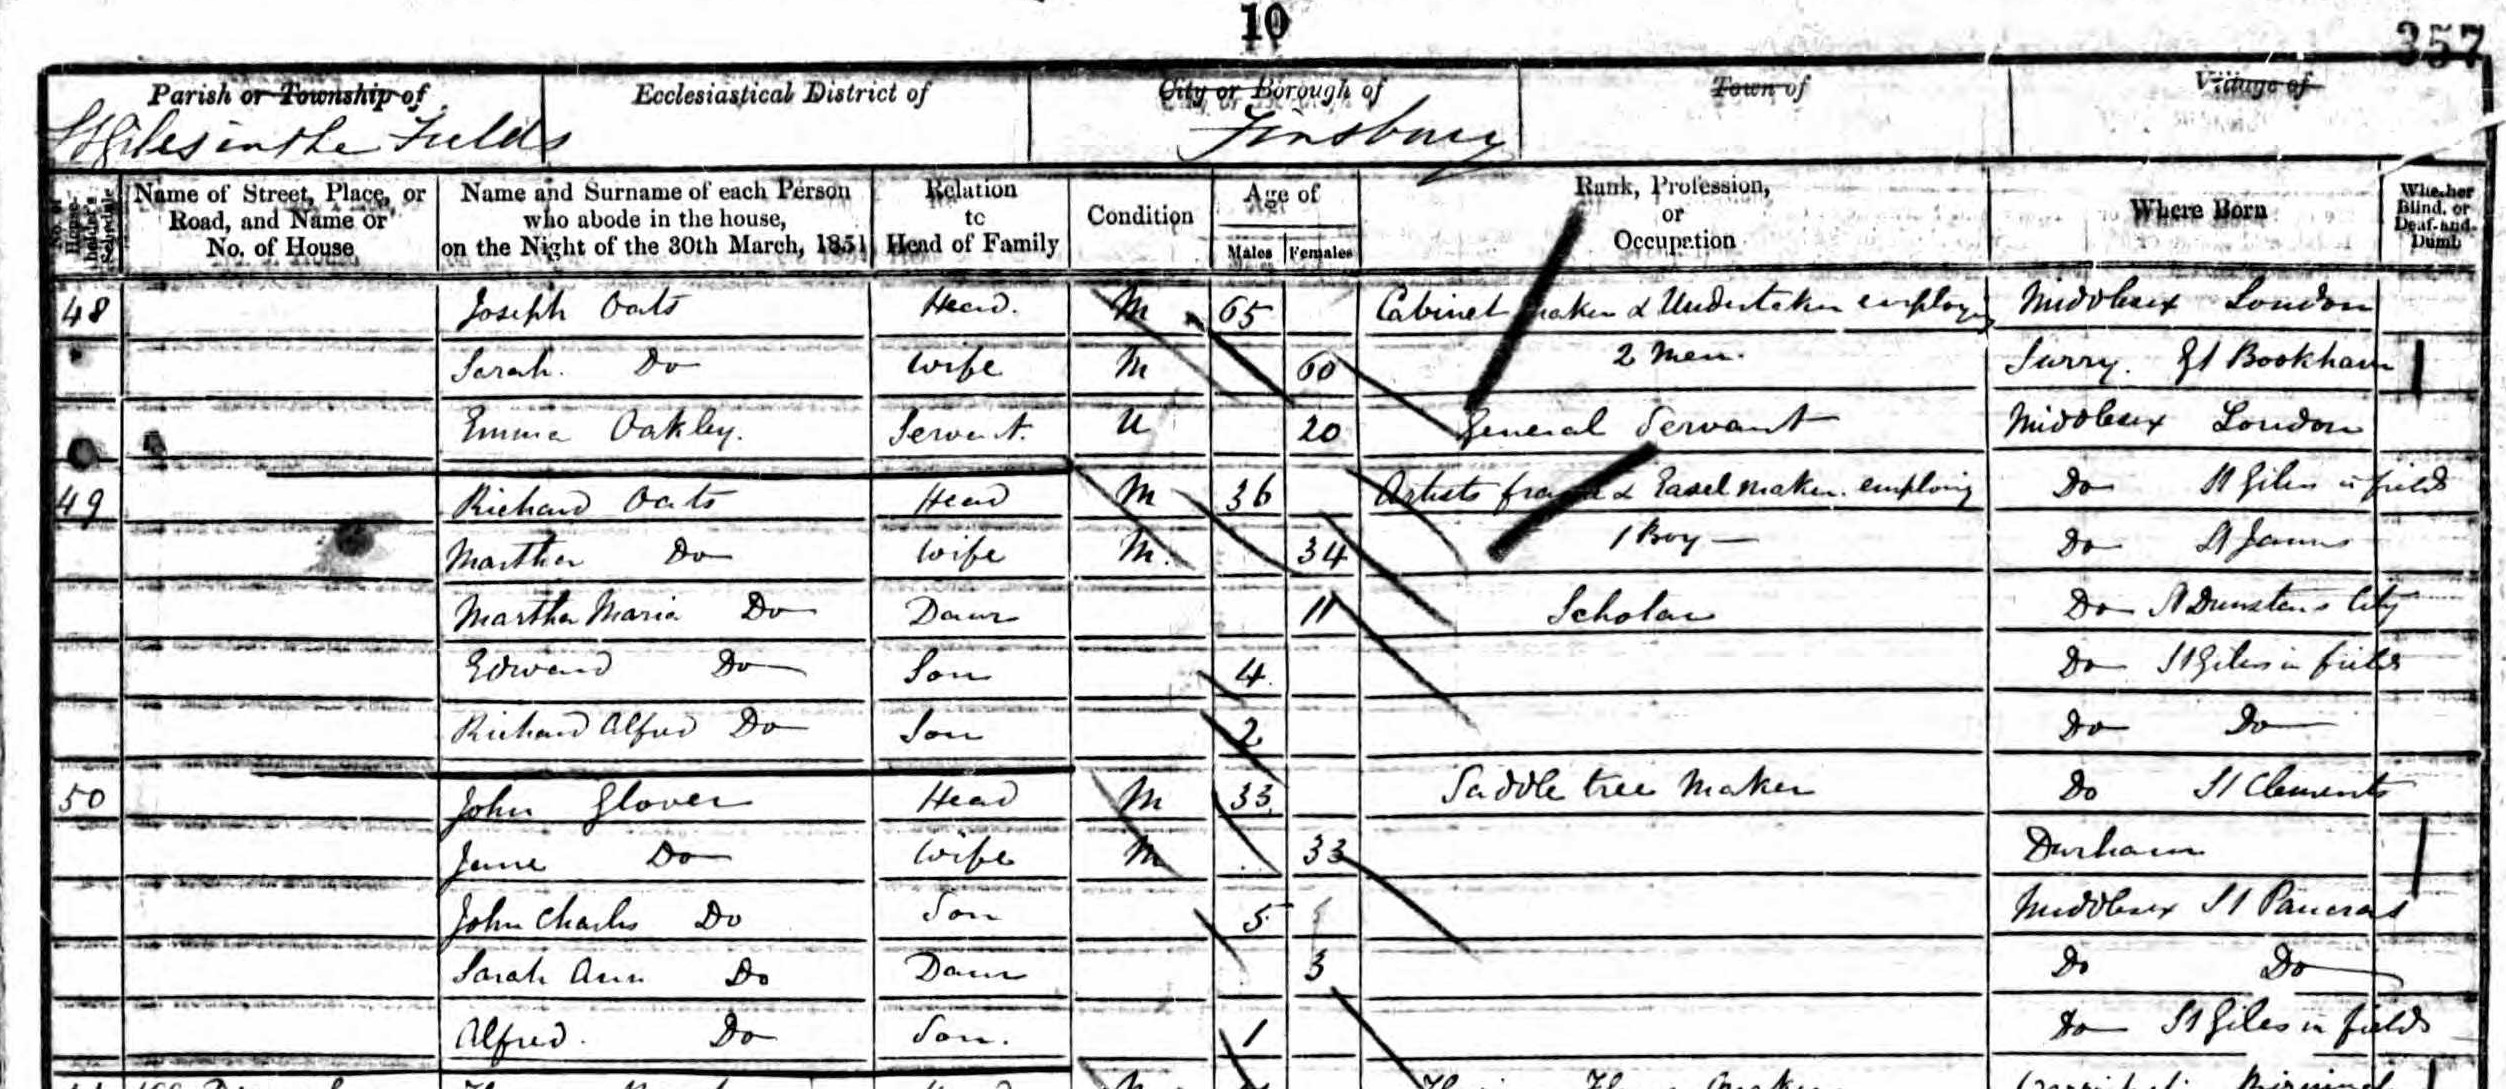 10
357
Parish or Township of
Ecclesiastical District of
City or Borough of
Town of
Village of
St Giles in the Fields
Finsbury
No. of House-holder's Schedule
Name of Street, Place, or Road, and Name or No. of House
Name and Surname of each Person who abode in the house, on the Night of the 30th March, 1851
Relation to Head of Family
Condition
Age of
Males
Females
Rank, Profession, or Occupation
Where Born
Whether Blind, or Deaf-and-Dumb
48 Joseph Oats Head. M 65 Cabinet maker & Undertaker employing Middlesex London
Sarah. Do Wife M 60 2 Men. Surry. Gt Bookham
Emma Oakley. Servant. U 20 General Servant Middlesex London
49 Richard Oats Head M 36 Artists frame & Easel maker. employing Do St Giles in fields
Martha Do Wife M. 34 1 Boy Do St James
Martha Maria Do Daur 11 Scholar Do St Dunstans City
Edward Do Son 4 Do St Giles in fields
Richard Alfred Do Son 2 Do Do
50 John Glover Head M 33 Saddle tree Maker Do St Clements
Jane Do Wife M 33 Durham
John Charles Do Son 5 Middlesex St Pancras
Sarah Ann Do Daur 3 Do Do
Alfred. Do Son. 1 Do St Giles in fields